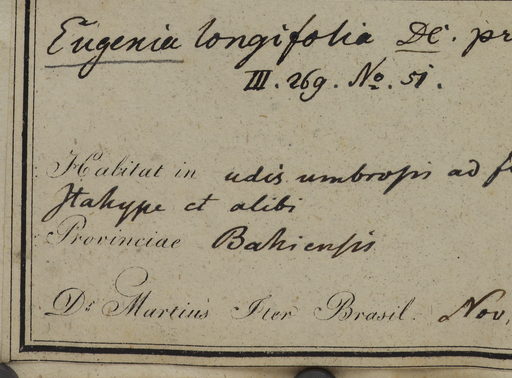 Eugenia longifolia DC. pr
III. 269. No. 51.
Habitat in udis umbrosis ad f
Itahype et alibi
Provinciae Bahiensis
Dr. Martius Iter Brasil. Nov.